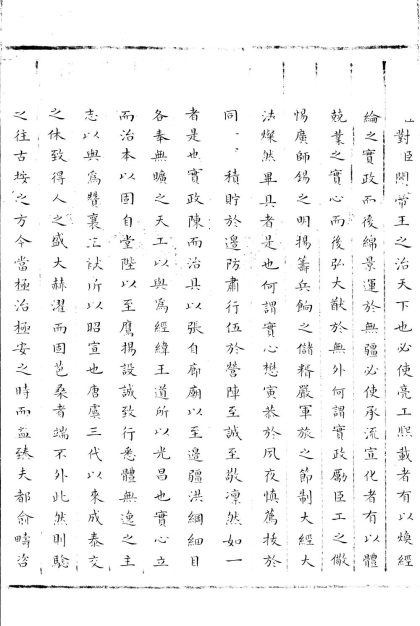 對臣聞帝王之治天下也必使亮工熙載者有以煥經
綸之實政而後綿景運於無疆必使承流宣化者有以體
兢業之實心而後弘大猷於無外何謂實政勵臣工之儆
惕廣師錫之明揚籌兵餉之儲糈嚴軍旅之節制大經大
法燦然畢具者是也何謂實心懋寅恭於夙夜慎薦拔於
同積貯於邊防肅行伍於營陣至誠至敬凛然如一
者是也實政陳而治具以張自廊廟以至邊疆洪綱細目
各奉無曠之天工以與爲經緯王道所以光昌也實心立
而治本以固自堂陛以至鷹揚設誠致行悉體無逸之主
志以與爲贊襄所以昭宣也唐虞三代以來成泰交
之休致得人之盛大赫濯而固苞桑者端不外此然則騐
之往古按之方今當極治極安之時而益臻夫都俞疇咨